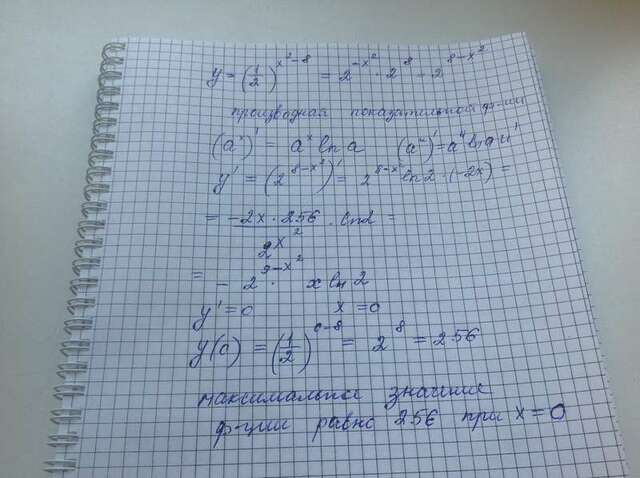 y = (1/2)^(x²-8) = 2^(-x²) · 2^8 = 2^(8-x²)
производная показательной ф-ции
(a^x)' = a^x ln a (a^u)' = a^u ln a · u'
y' = (2^(8-x²))' = 2^(8-x²) ln 2 · (-2x) =
= -2x · 256 / 2^(x²) · ln 2 =
= - 2^(9-x²) · x ln 2
y' = 0 x = 0
y(0) = (1/2)^(0-8) = 2^8 = 256
максимальное значение
ф-ции равно 256 при x = 0